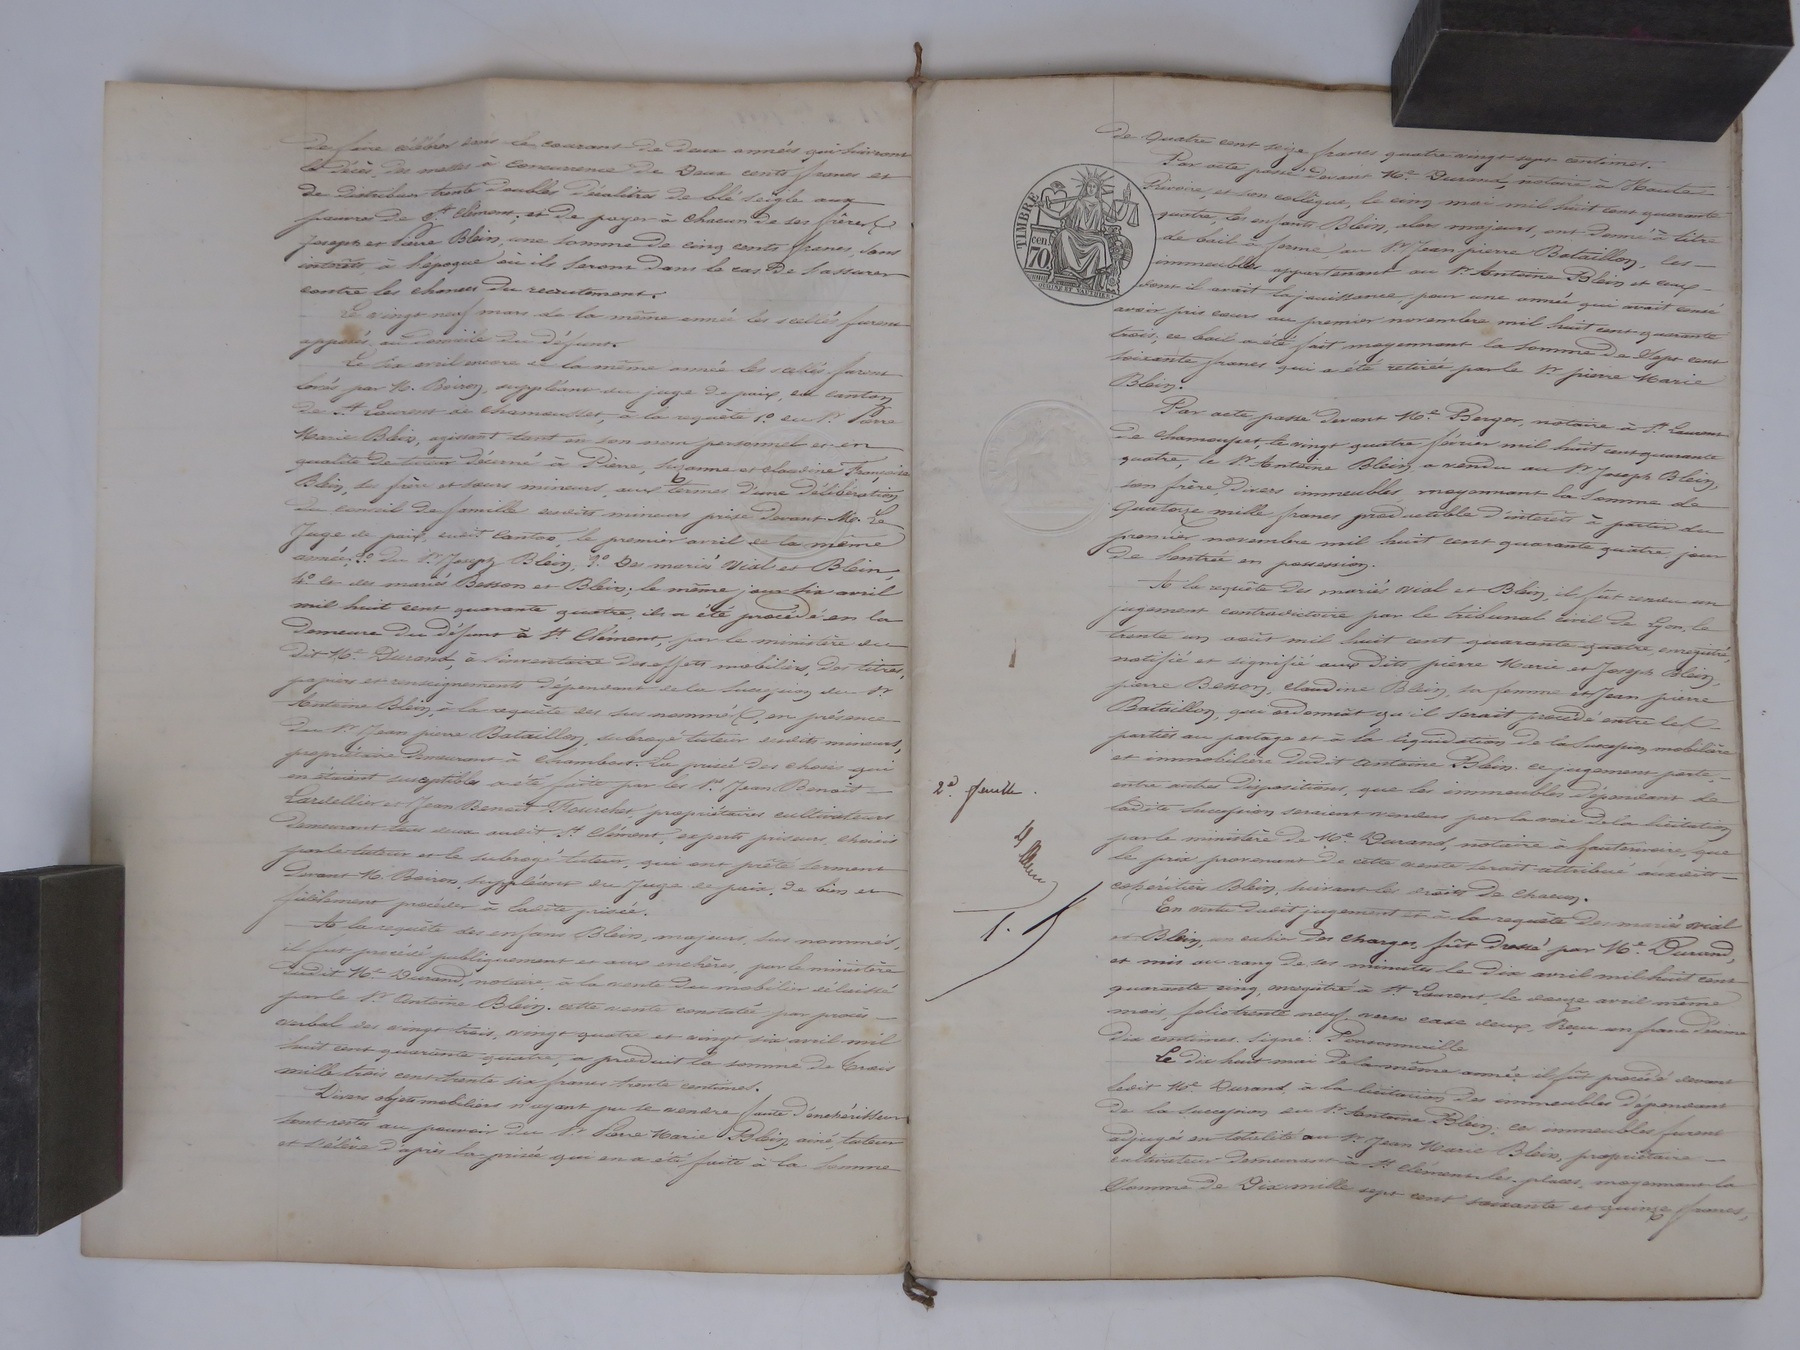 de faire célébrer dans le courant de deux années qui suivront
le décès, des messes à concurrence de Deux cents francs et
de distribuer trente doubles décalitres de blé seigle aux
pauvres de St. Clément, et de payer à chacun de ses frères
Joseph et Pierre Blein, une somme de cinq cents francs, sans
intérêts, à l'époque où ils seront dans le cas de s'assurer
contre les chances du recrutement.
Le vingt neuf mars de la même année les scellés furent
apposés au domicile du défunt.
Le six avril encore de la même année les scellés furent
levés par M. Boiron, suppléant du juge de paix, du canton
de St. Laurent de Chamousset, à la requête 1.o du Sr. Pierre
Marie Blein, agissant tant en son nom personnel et en
qualité de tuteur décerné à Pierre, Suzanne et Claudine Françoise
Blein, ses frère et sœurs mineurs, aux termes d'une délibération
du conseil de famille desdits mineurs prise devant Mr. Le
Juge de paix, dudit canton, le premier avril de la même
année; 2.o du Sr. Joseph Blein, 3.o Des mariés Vial et Blein,
4.o et des mariés Besson et Blein; le même jour six avril
mil huit cent quarante quatre, il a été procédé en la
demeure du défunt à St. Clément, par le ministère du
dit Me. Durand, à l'inventaire des effets mobiliers, des titres,
papiers et renseignements dépendant de la succession du Sr.
Antoine Blein, à la requête des sus nommés, en présence
du Sr. Jean pierre Bataillon, subrogé tuteur desdits mineurs,
propriétaire demeurant à Chambost. La prisée des choses qui
en étaient susceptibles a été faite par les Srs. Jean Benoit
Lardellier et Jean Benoit Fourchet, propriétaires cultivateurs
demeurant tous deux audit St. Clément, experts priseurs choisis
par le tuteur et le subrogé tuteur, qui ont prêté serment
devant M. Boiron, suppléant du Juge de paix, de bien et
fidèlement procéder à ladite prisée.
A la requête des enfans Blein, majeurs, sus nommés,
il fut procédé publiquement et aux enchères, par le ministère
dudit Me. Durand, notaire à la vente du mobilier délaissé
par le Sr. Antoine Blein. cette vente constatée par procès
verbal des vingt trois, vingt quatre et vingt six avril mil
huit cent quarante quatre, a produit la somme de Trois
mille trois cent trente six francs trente centimes.
Divers objets mobiliers n'ayant pu se vendre faute d'enchérisseurs
sont restés au pouvoir du Sr. Pierre Marie Blein, ainé, tuteur
et s'élève d'après la prisée qui en a été faite à la somme
de Quatre cent seize francs quatre vingt sept centimes.
TIMBRE
70 cen
Par acte passé devant Me. Durand, notaire à Haute
Rivoire, et son collègue, le cinq mai mil huit cent quarante
quatre, les enfants Blein, alors majeurs, ont donné à titre
de bail à ferme, au Sr. Jean pierre Bataillon, les
immeubles appartenant au Sr. Antoine Blein et ceux
dont il avait la jouissance, pour une année qui avait censé
avoir pris cours au premier novembre mil huit cent quarante
trois, ce bail a été fait moyennant la somme de Sept cent
soixante francs qui a été retirée par le Sr. pierre Marie
Blein.
Par acte passé devant Me. Berger, notaire à St. Laurent
de Chamousset le vingt quatre février mil huit cent quarante
quatre, le Sr. Antoine Blein, a vendu au Sr. Joseph Blein,
son frère, divers immeubles, moyennant la somme de
Quatorze mille francs productible d'intérêts à partir du
premier novembre mil huit cent quarante quatre, jour
de l'entrée en possession.
A la requête des mariés Vial et Blein, il fut rendu un
jugement contradictoire par le tribunal civil de Lyon, le
trente un août mil huit cent quarante quatre enregistré,
notifié et signifié aux dits pierre Marie et Joseph Blein,
pierre Besson, Claudine Blein, sa femme et Jean pierre
Bataillon, qui ordonnait qu'il serait procédé entre les
parties au partage et à la liquidation de la succession mobilière
et immobilière dudit Antoine Blein. ce jugement porte,
2e. feuille.
entre autres dispositions, que les immeubles dépendant de
ladite succession seraient vendus par la voie de la licitation
par le ministère de Me. Durand, notaire à hauterivoire, que
le prix provenant de cette vente serait attribué auxdits
cohéritiers Blein, suivant les droits de chacun.
En vertu dudit jugement et à la requête des mariés Vial
et Blein, un cahier des charges, fût dressé par Me. Durand,
et mis au rang de ses minutes le dix avril mil huit cent
quarante cinq, enregistré à St. Laurent, le douze avril même
mois, folio trente neuf verso case deux, Reçu un franc décime
dix centimes. signé: Ponsonneville
Le dix huit mai de la même année il fût procédé devant
ledit Me. Durand, à la licitation des immeubles dépendant
de la succession du Sr. Antoine Blein. ces immeubles furent
adjugés en totalité au Sr. Jean Marie Blein, propriétaire
cultivateur demeurant à St. Clément-les-places, moyennant la
somme de Dix mille sept cent soixante et quinze francs,